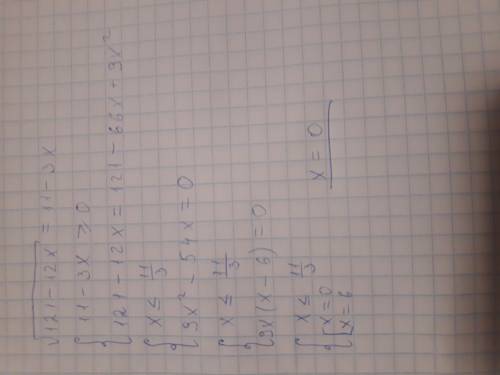 √121-12x = 11-3x
{ 11-3x ≥ 0
121-12x = 121-66x+9x²
{ x ≤ 11/3
9x² - 54x = 0
{ x ≤ 11/3
9x(x-6) = 0
{ x ≤ 11/3
[ x=0
x=6
x = 0